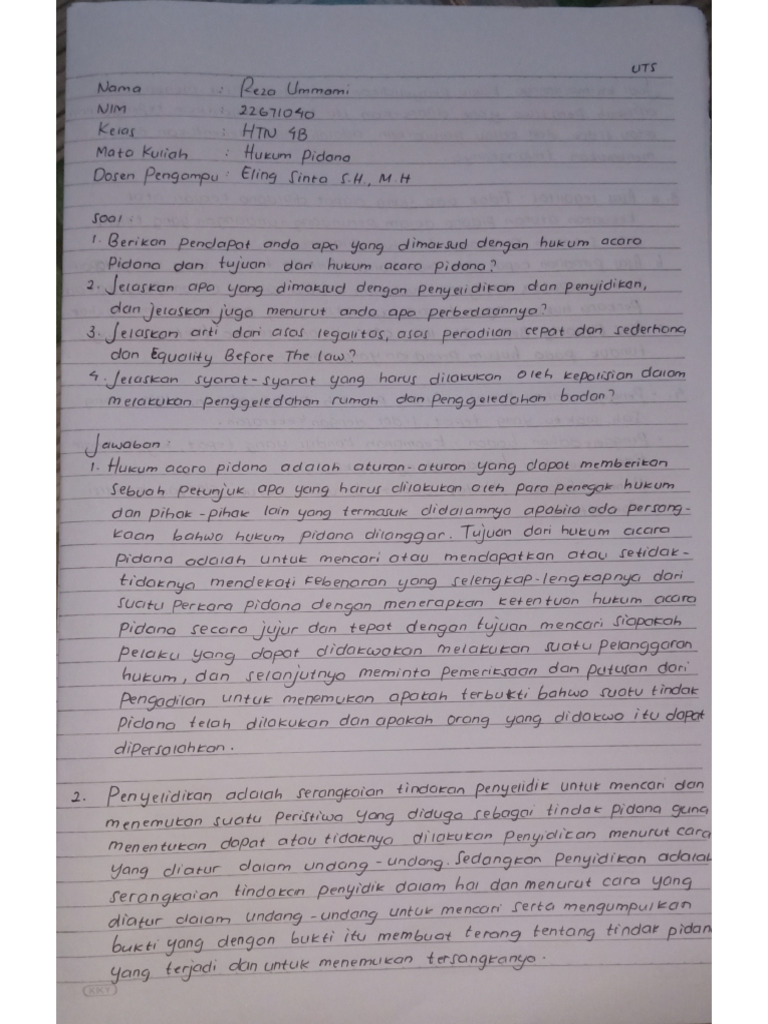 UTS
Nama : Reza Ummami
NIM : 22671040
Kelas : HTN 4B
Mata Kuliah : Hukum Pidana
Dosen Pengampu : Eling Sinta S.H., M.H
Soal :
1. Berikan pendapat anda apa yang dimaksud dengan hukum acara
Pidana dan tujuan dari hukum acara pidana?
2. Jelaskan apa yang dimaksud dengan penyelidikan dan penyidikan,
dan jelaskan juga menurut anda apa perbedaannya?
3. Jelaskan arti dari asas legalitas, asas peradilan cepat dan sederhana
dan Equality Before The law?
4. Jelaskan syarat-syarat yang harus dilakukan oleh kepolisian dalam
melakukan penggeledahan rumah dan penggeledahan badan?
Jawaban :
1. Hukum acara pidana adalah aturan-aturan yang dapat memberikan
sebuah petunjuk apa yang harus dilakukan oleh para penegak hukum
dan pihak-pihak lain yang termasuk didalamnya apabila ada persang-
kaan bahwa hukum pidana dilanggar. Tujuan dari hukum acara
pidana adalah untuk mencari atau mendapatkan atau setidak-
tidaknya mendekati kebenaran yang selengkap-lengkapnya dari
suatu perkara pidana dengan menerapkan ketentuan hukum acara
pidana secara jujur dan tepat dengan tujuan mencari siapakah
pelaku yang dapat didakwakan melakukan suatu pelanggaran
hukum, dan selanjutnya meminta pemeriksaan dan putusan dari
pengadilan untuk menemukan apakah terbukti bahwa suatu tindak
pidana telah dilakukan dan apakah orang yang didakwa itu dapat
dipersalahkan.
2. Penyelidikan adalah serangkaian tindakan penyelidik untuk mencari dan
menemukan suatu peristiwa yang diduga sebagai tindak pidana guna
menentukan dapat atau tidaknya dilakukan penyidican menurut cara
yang diatur dalam undang-undang. Sedangkan penyidikan adalah
serangkaian tindakan penyidik dalam hal dan menurut cara yang
diatur dalam undang-undang untuk mencari serta mengumpulkan
bukti yang dengan bukti itu membuat terang tentang tindak pidana
yang terjadi dan untuk menemukan tersangkanya.